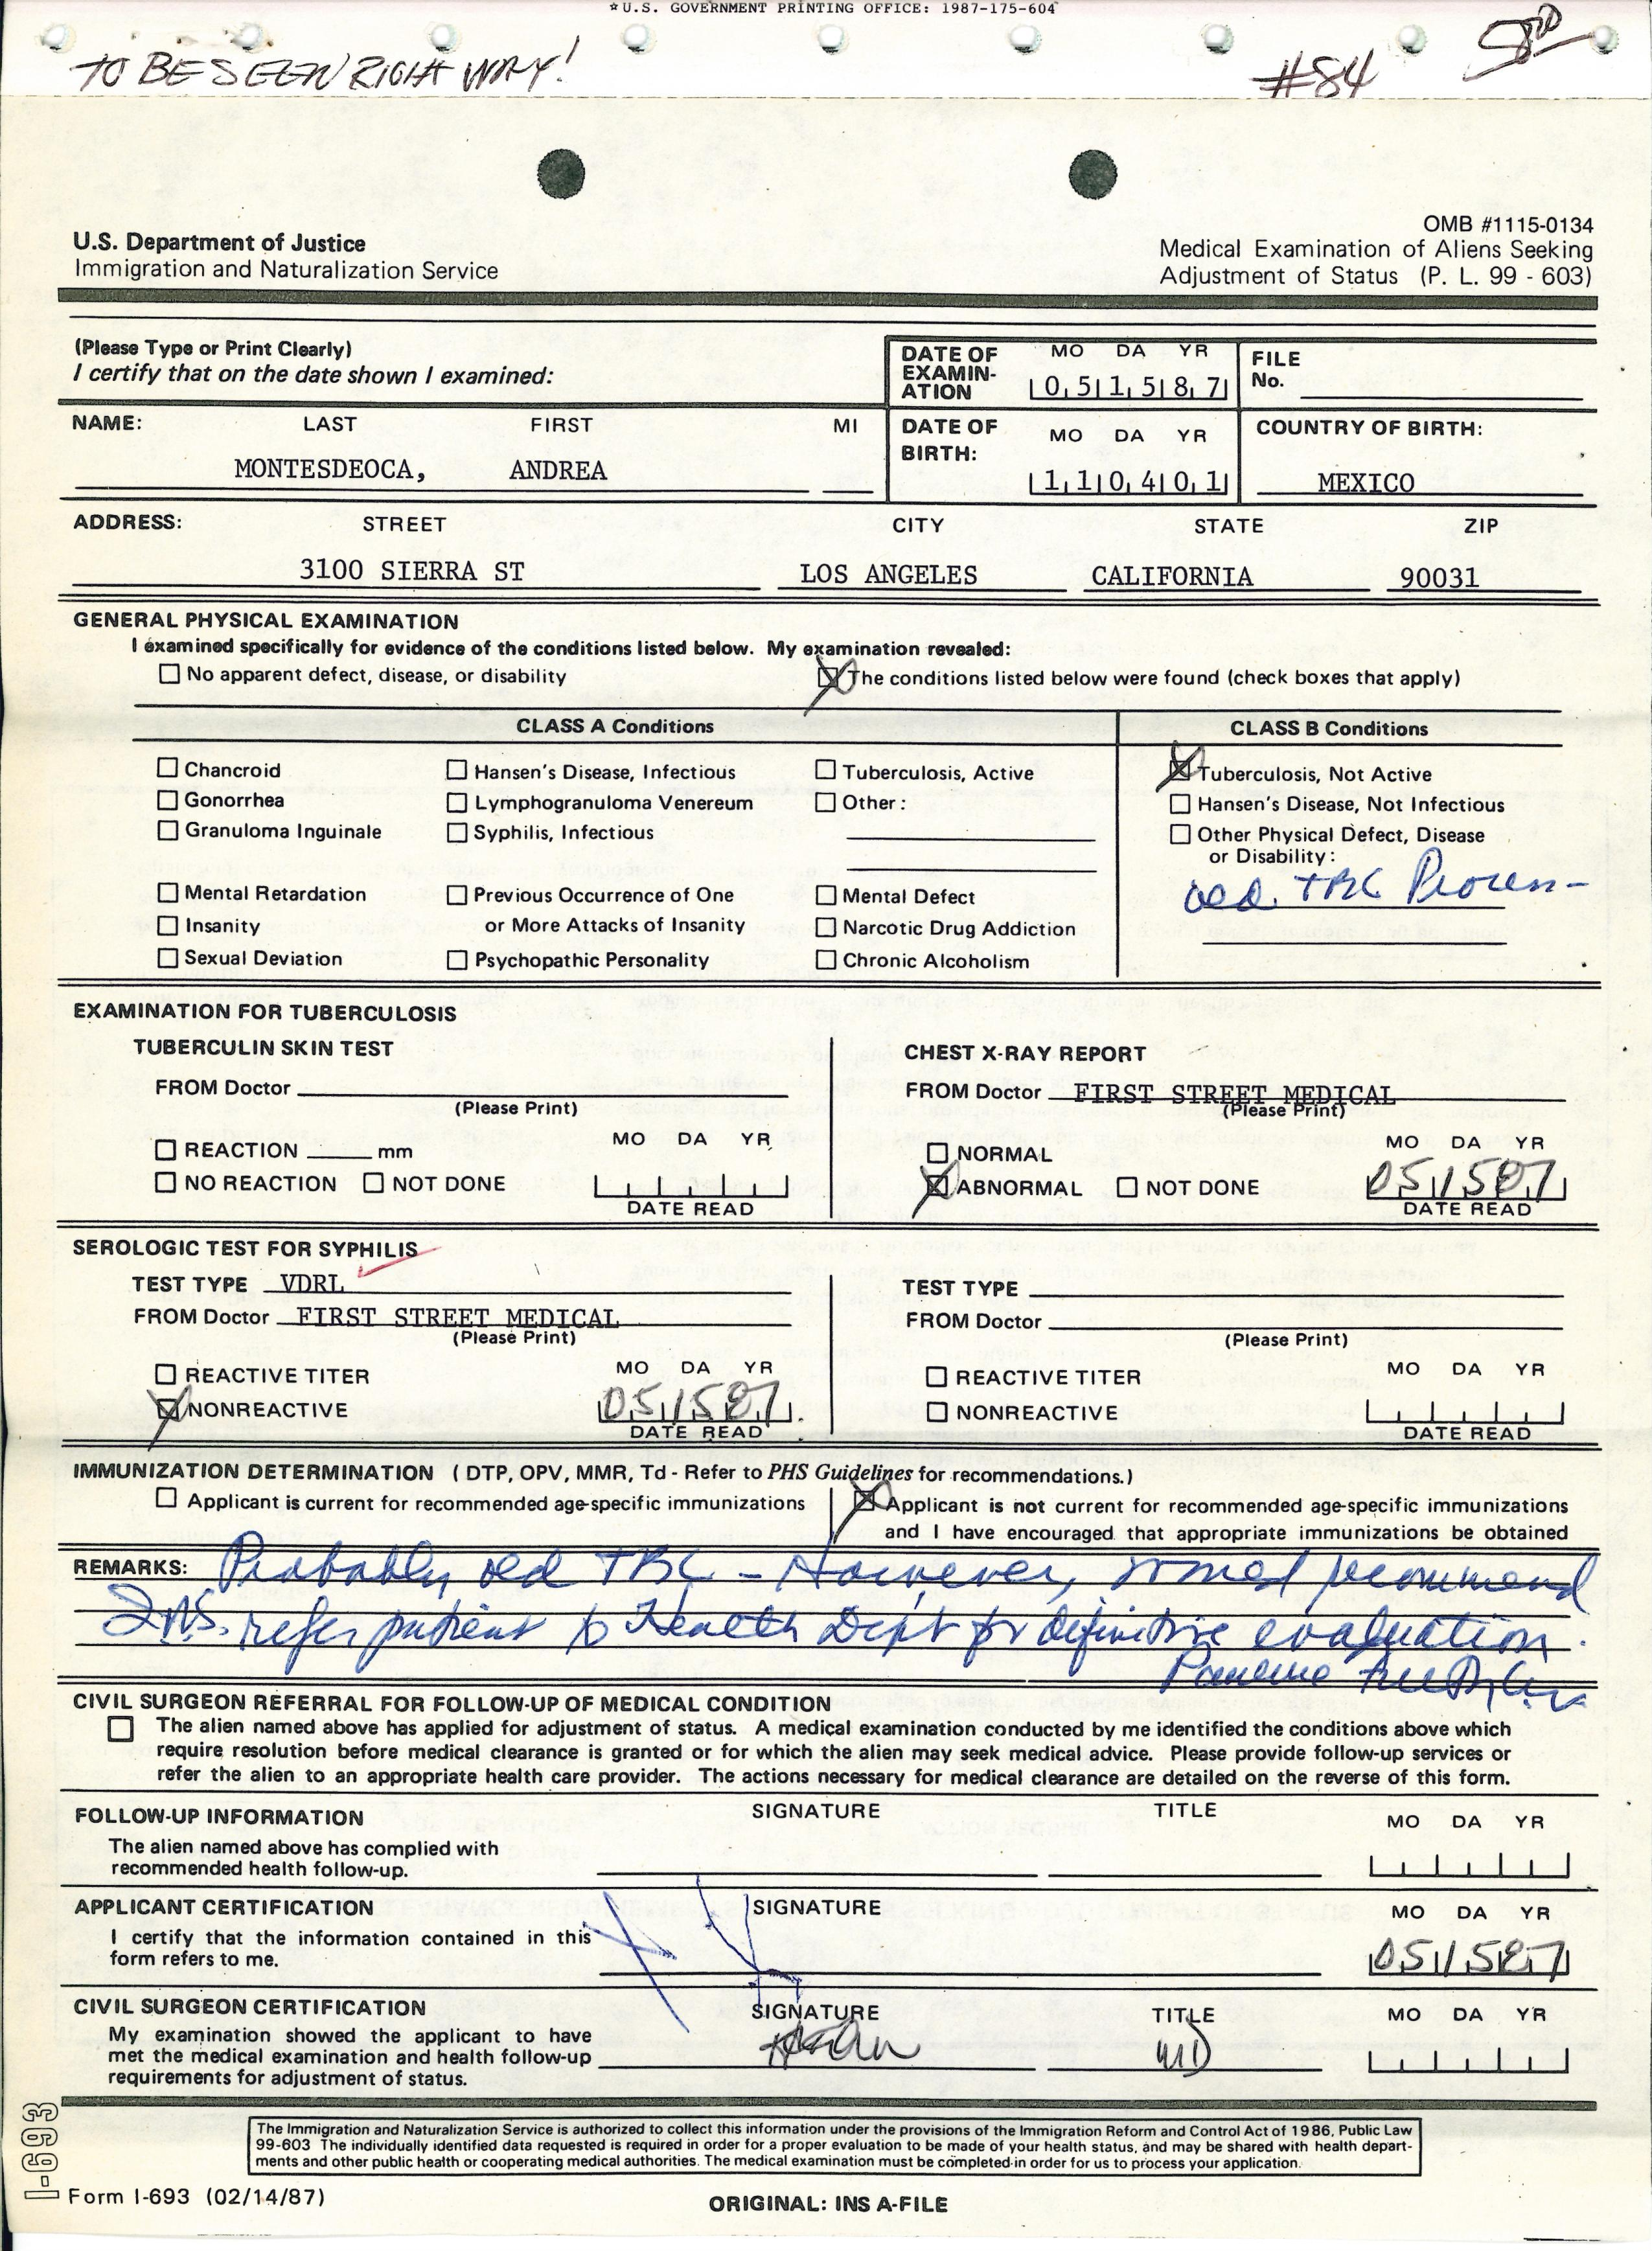 ☆U.S. GOVERNMENT PRINTING OFFICE: 1987-175-604
TO BE SEEN RIGHT WAY!
#84
U.S. Department of Justice
Immigration and Naturalization Service
OMB #1115-0134
Medical Examination of Aliens Seeking
Adjustment of Status (P. L. 99 - 603)
(Please Type or Print Clearly)
I certify that on the date shown I examined:
DATE OF EXAMIN-ATION MO DA YR 051587
FILE No.
NAME: LAST FIRST MI
MONTESDEOCA, ANDREA
DATE OF BIRTH: MO DA YR 110401
COUNTRY OF BIRTH:
MEXICO
ADDRESS: STREET CITY STATE ZIP
3100 SIERRA ST LOS ANGELES CALIFORNIA 90031
GENERAL PHYSICAL EXAMINATION
I examined specifically for evidence of the conditions listed below. My examination revealed:
No apparent defect, disease, or disability
The conditions listed below were found (check boxes that apply)
CLASS A Conditions
CLASS B Conditions
Chancroid Hansen's Disease, Infectious Tuberculosis, Active Tuberculosis, Not Active
Gonorrhea Lymphogranuloma Venereum Other: Hansen's Disease, Not Infectious
Granuloma Inguinale Syphilis, Infectious Other Physical Defect, Disease
or Disability:
old TBC Process
Mental Retardation Previous Occurrence of One Mental Defect
Insanity or More Attacks of Insanity Narcotic Drug Addiction
Sexual Deviation Psychopathic Personality Chronic Alcoholism
EXAMINATION FOR TUBERCULOSIS
TUBERCULIN SKIN TEST
FROM Doctor
(Please Print)
REACTION mm MO DA YR
NO REACTION NOT DONE
DATE READ
CHEST X-RAY REPORT
FROM Doctor FIRST STREET MEDICAL
(Please Print)
NORMAL MO DA YR
ABNORMAL NOT DONE 051587
DATE READ
SEROLOGIC TEST FOR SYPHILIS
TEST TYPE VDRL
FROM Doctor FIRST STREET MEDICAL
(Please Print)
REACTIVE TITER MO DA YR
NONREACTIVE 051587
DATE READ
TEST TYPE
FROM Doctor
(Please Print)
REACTIVE TITER MO DA YR
NONREACTIVE
DATE READ
IMMUNIZATION DETERMINATION (DTP, OPV, MMR, Td - Refer to PHS Guidelines for recommendations.)
Applicant is current for recommended age-specific immunizations
Applicant is not current for recommended age-specific immunizations
and I have encouraged that appropriate immunizations be obtained
REMARKS: Probably old TBC - However, would recommend
INS. refer patient to Health Dept for definitive evaluation.
CIVIL SURGEON REFERRAL FOR FOLLOW-UP OF MEDICAL CONDITION
The alien named above has applied for adjustment of status. A medical examination conducted by me identified the conditions above which
require resolution before medical clearance is granted or for which the alien may seek medical advice. Please provide follow-up services or
refer the alien to an appropriate health care provider. The actions necessary for medical clearance are detailed on the reverse of this form.
FOLLOW-UP INFORMATION SIGNATURE TITLE MO DA YR
The alien named above has complied with
recommended health follow-up.
APPLICANT CERTIFICATION SIGNATURE MO DA YR
I certify that the information contained in this
form refers to me. 051587
CIVIL SURGEON CERTIFICATION SIGNATURE TITLE MO DA YR
My examination showed the applicant to have
met the medical examination and health follow-up MD
requirements for adjustment of status.
The Immigration and Naturalization Service is authorized to collect this information under the provisions of the Immigration Reform and Control Act of 1986, Public Law
99-603 The individually identified data requested is required in order for a proper evaluation to be made of your health status, and may be shared with health depart-
ments and other public health or cooperating medical authorities. The medical examination must be completed in order for us to process your application.
I-693
Form I-693 (02/14/87)
ORIGINAL: INS A-FILE